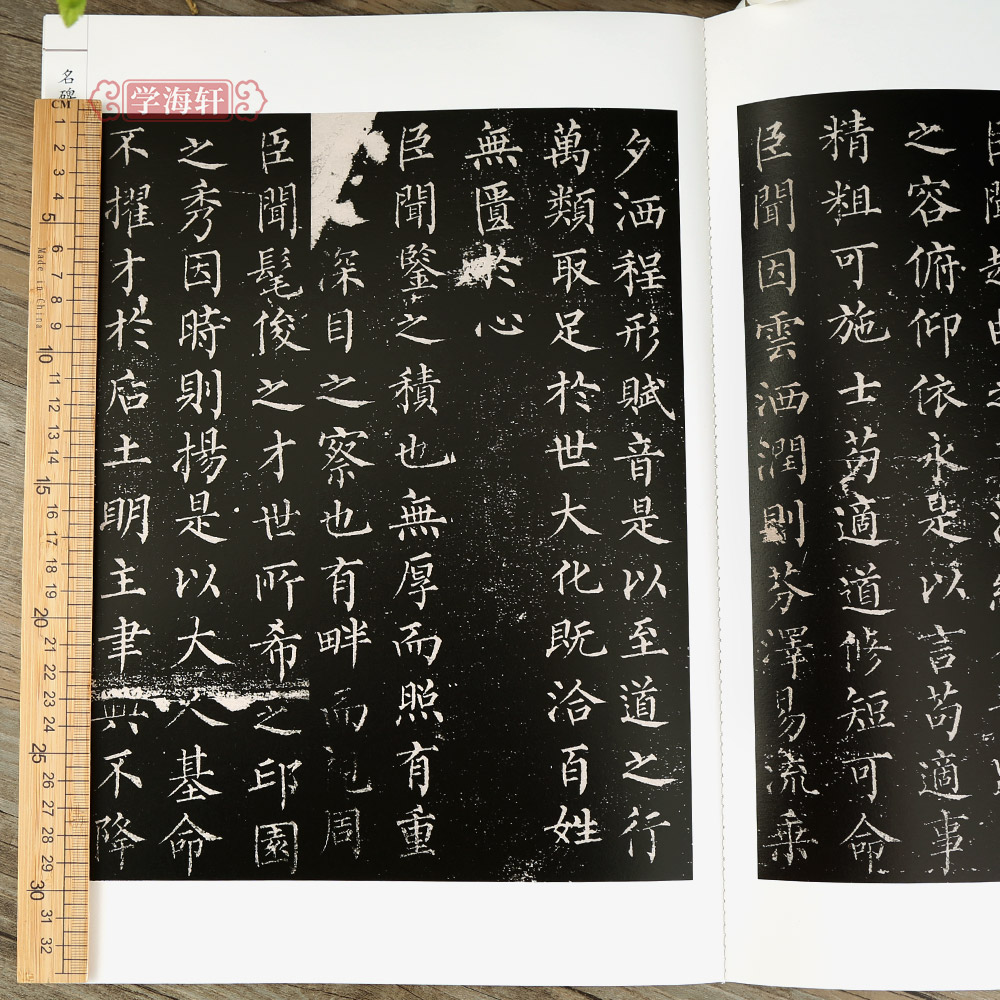 之容俯仰依永是以言苟適事
精粗可施士苟適道修短可命
臣聞因雲洒潤則芬澤易流乘
夕洒程形賦音是以至道之行
萬類取足於世大化既洽百姓
無匱於心
臣聞鑒之積也無厚而照有重
深目之察也有畔而周
臣聞髦俊之才世所希之邱園
之秀因時則揚是以大人基命
不擢才於后土明主聿興不降
名碑
学海轩
CM
1
2
3
4
5
6
7
8
9
10
11
12
13
14
15
16
17
18
19
20
21
22
23
24
25
26
27
28
29
30
31
32
Made in China